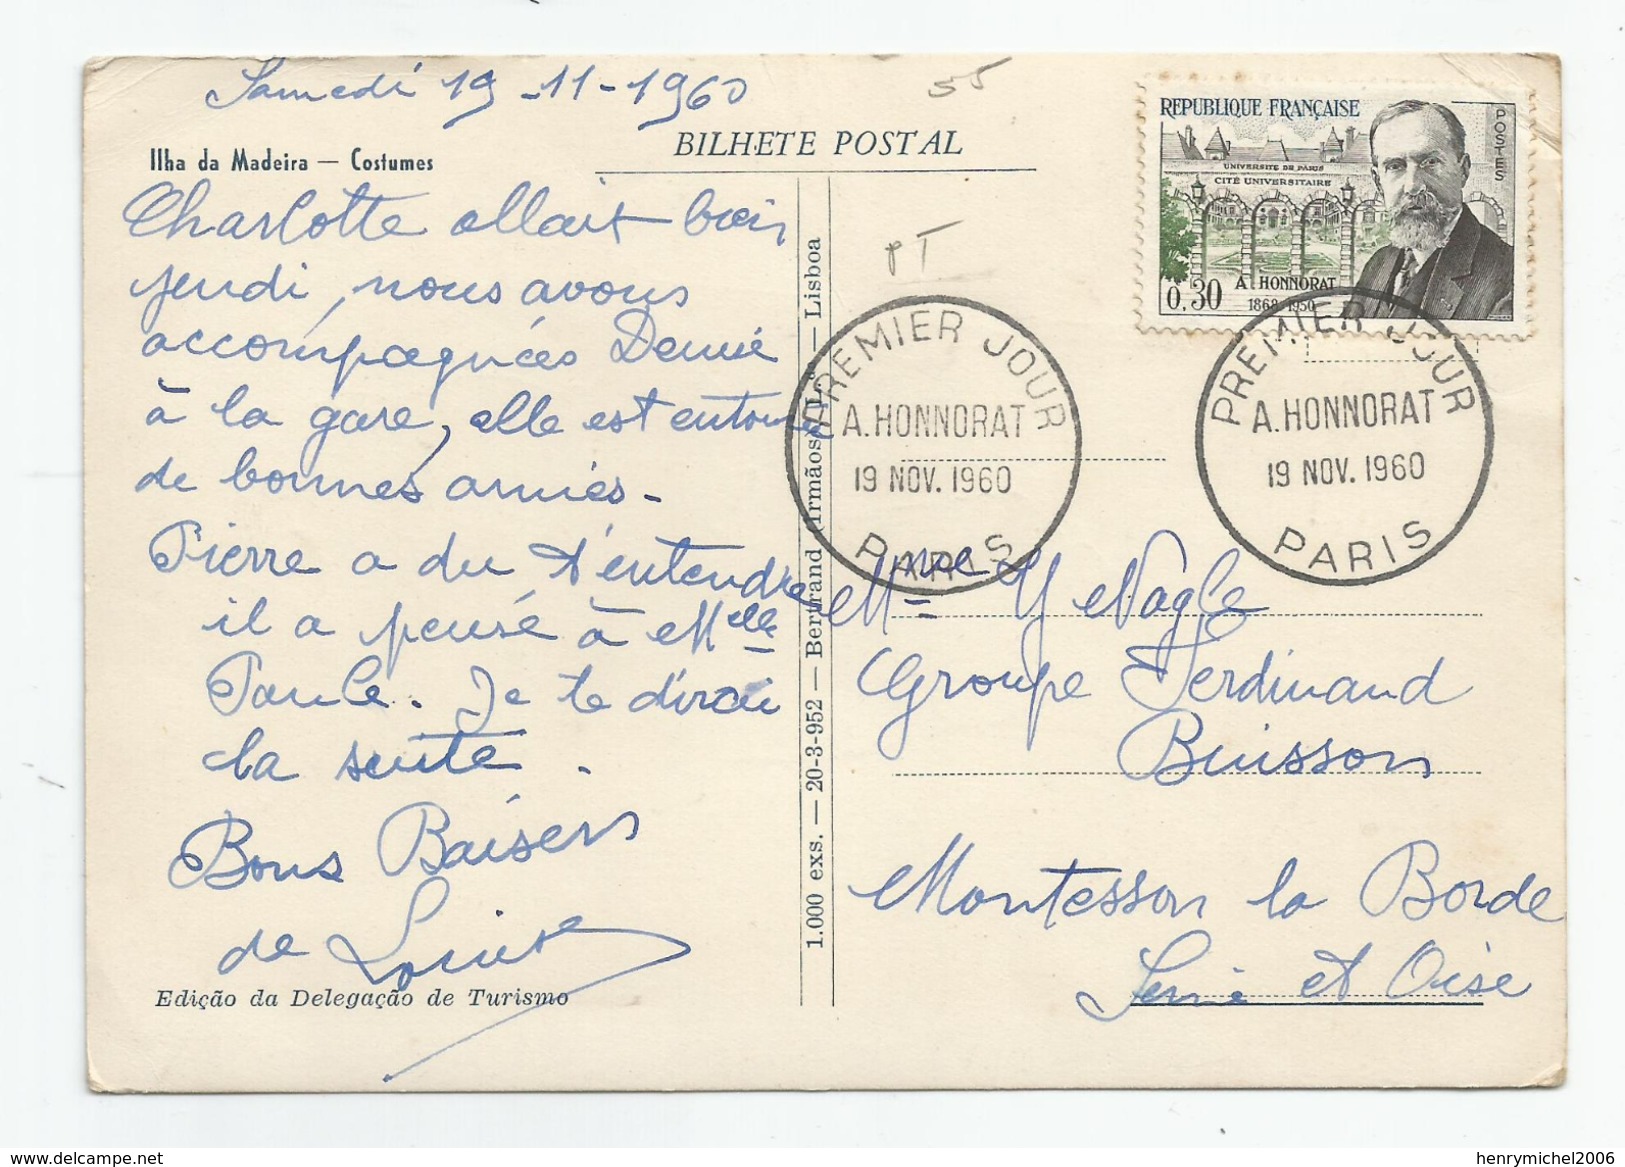 Samedi 19-11-1960
55
BILHETE POSTAL
Ilha da Madeira — Costumes
REPUBLIQUE FRANÇAISE
POSTES
UNIVERSITE DE PARIS
CITÉ UNIVERSITAIRE
A. HONNORAT
0,30
1868-1950
PT
Charlotte allait bien
jeudi, nous avons
accompagnées Denise
à la gare, elle est entourée
de bonnes amies -
Pierre a du t'entendre
il a pensé à Melle
Paule. Je te dirai
la suite.
Bons Baisers
de Louise
Edição da Delegação de Turismo
1.000 exs. — 20-3-952 — Bertrand (Irmãos), L.da — Lisboa
PREMIER JOUR
A. HONNORAT
19 NOV. 1960
PARIS
PREMIER JOUR
A. HONNORAT
19 NOV. 1960
PARIS
Mme Nagle
Groupe Ferdinand
Buisson
Montesson la Borde
Seine et Oise
delcampe.net
henrymichel2006